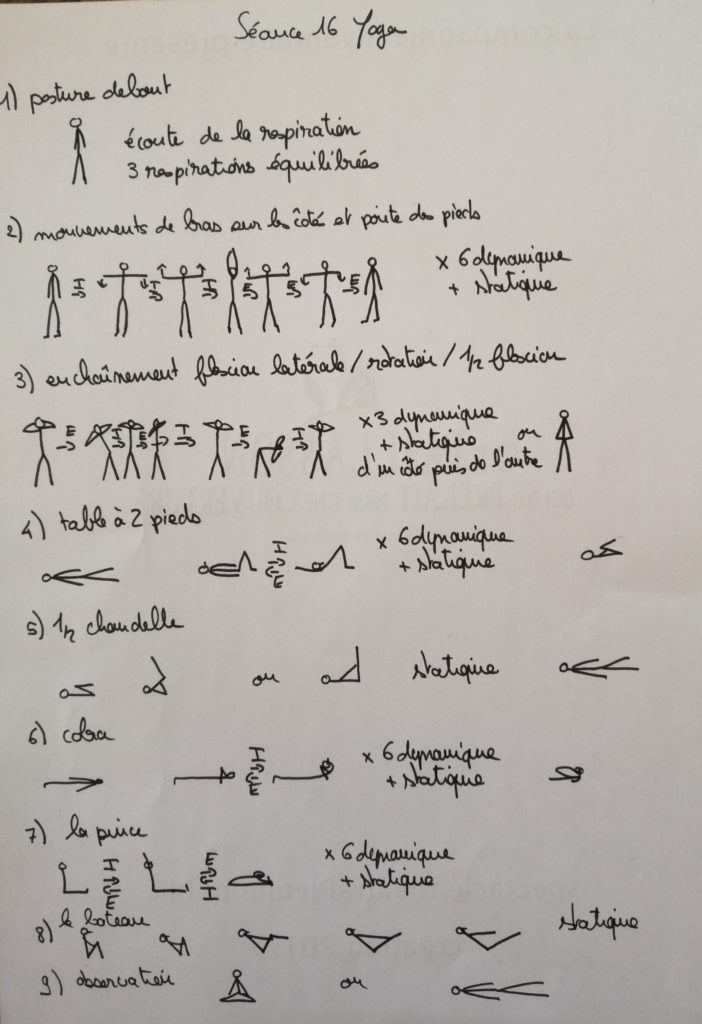 Séance 16 Yoga
1) posture debout
écoute de la respiration
3 respirations équilibrées
2) mouvements de bras sur les côté et pointe des pieds
I I I E E E
x 6 dynamique
+ statique
3) enchaînement flexion latérale / rotation / 1/2 flexion
E I E I E I
x3 dynamique
+ statique ou
d'un côté puis de l'autre
4) table à 2 pieds
I
E
x 6 dynamique
+ statique
5) 1/2 chandelle
ou statique
6) cobra
I
E
x 6 dynamique
+ statique
7) la pince
I E
E I
x 6 dynamique
+ statique
8) le bateau
statique
9) observation ou